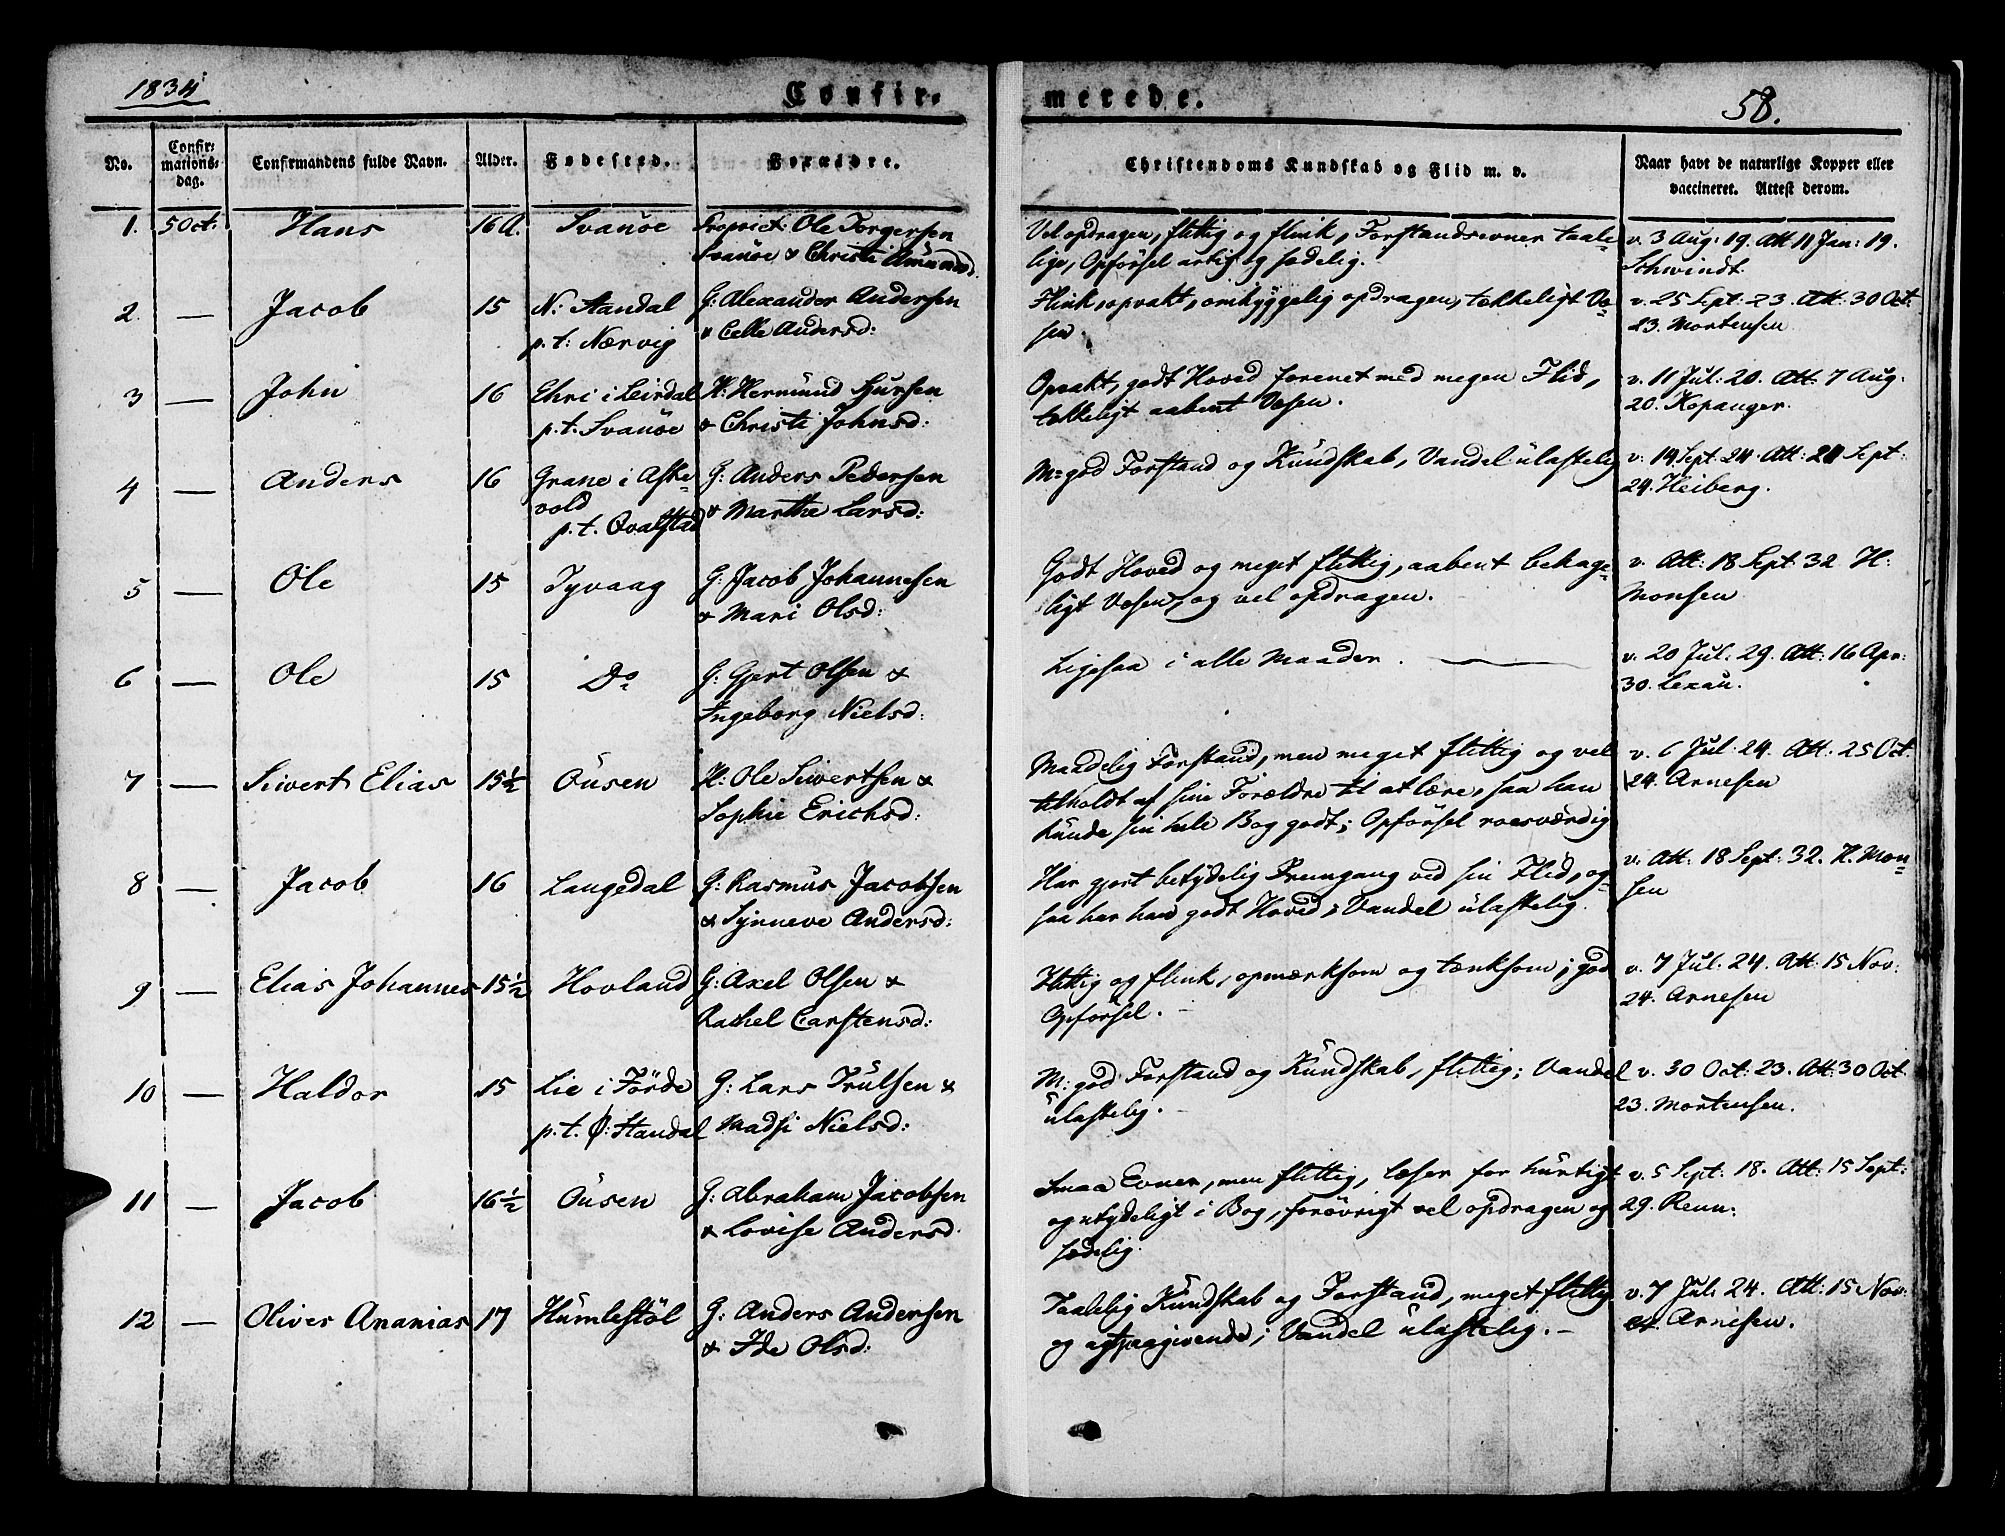 1834
Confir-
merede.
58.
No.
Confir-
mations-
dag.
Confirmandens fulde Navn.
Alder.
Fødested.
Forældre.
Christendoms Kundskab og Flid m. v.
Naar havt de naturlige Kopper eller
vaccineret. Attest derom.
1. 5 Oct: Hans 16 A. Svanöe Propriet: Ole Torgersen
Svanöe & Christi Amundsd.
Vel opdragen, flittig og flink, Forstandsevner taale-
lige, Opförsel artig og sædelig.
v. 3 Aug: 19. Att 11 Jan: 19.
Schwindt.
2. — Jacob 15 N: Standal G: Alexander Andersen
p. t: Nærvig & Celle Andersd:
Flink, opvakt, omhyggelig opdragen, tækkeligt Væ-
sen
v. 25 Sept: 23. Att: 30 Oct:
23. Mortensen
3 — John 16 Ehri i Leirdal H: Hermund Sjursen
p. t. Svanöe & Christi Johnsd:
Opvakt, godt Hoved forenet med megen Flid,
tækkeligt aabent Væsen.
v. 11 Jul: 20. Att: 7 Aug:
20. Kopanger.
4 — Anders 16 Grane i Aske- G: Anders Pedersen
vold & Marthe Larsd:
p. t. Qvalstad
M: god Forstand og Kundskab, Vandel ulastelig
v. 14 Sept: 24. Att: 21 Sept:
24. Heiberg.
5 — Ole 15 Tyvaag G: Jacob Johannesen
& Mari Olsd:
Godt Hoved og meget flittig, aabent behage-
ligt Væsen, og vel opdragen.
v. Att: 18 Sept: 32 H:
Monsen
6 — Ole 15 Do G: Gjert Olsen &
Ingeborg Nielsd:
Ligesaa i alle Maader.
v. 20 Jul: 29. Att: 16 Apr:
30. Lexau.
7 — Sivert Elias 15½ Öusen H: Ole Sivertsen &
Sophie Erichsd:
Maadelig Forstand, men meget flittig og vel
tilholdt af sine Forældre til at lære, saa han
kunde sin hele Bog godt; Opförsel roesværdig
v. 6 Jul: 24. Att: 25 Oct
24. Arnesen
8 — Jacob 16 Langedal G: Rasmus Jacobsen
& Synneve Andersd:
Har gjort betydelig Fremgang ved sin Flid, og-
saa har han godt Hoved, Vandel ulastelig.
v. Att: 18 Sept: 32. H. Mon-
sen
9 — Elias Johannes 15½ Hovland G: Axel Olsen &
Rachel Carstensd:
Flittig og flink, opmærksom og tænksom; god
Opförsel.
v. 7 Jul: 24. Att: 15 Nov:
24. Arnesen
10 — Haldor 15 Lie i Förde G: Lars Trulsen &
p. t. Ø: Standal Madsi Nielsd:
M: god Forstand og Kundskab, flittig; Vandel
ulastelig.
v. 30 Oct: 23. Att: 30 Oct
23. Mortensen.
11 — Jacob 16½ Öusen G: Abraham Jacobsen
& Lovise Andersd.
Smaa Evner, men flittig, læser for hurtigt
og utydeligt i Bog, forövrigt vel opdragen og
sædelig.
v. 5 Sept: 18. Att: 15 Sept:
29. Renn:
12 — Oliver Ananias 17 Humlestöl G: Anders Andersen
& Ide Olsd:
Taalelig Kundskab og Forstand, meget flittig
og agtpaagivende; Vandel ulastelig.
v. 7 Jul: 24. Att: 15 Nov:
Arnesen.